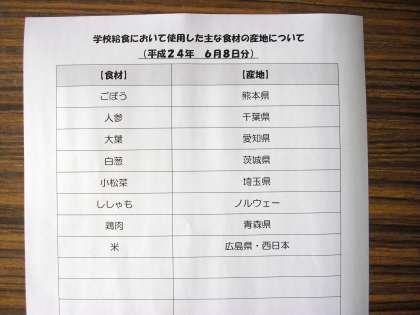 学校給食において使用した主な食材の産地について
（平成２４年　６月８日分）
【食材】　【産地】
ごぼう　熊本県
人参　千葉県
大葉　愛知県
白葱　茨城県
小松菜　埼玉県
ししゃも　ノルウェー
鶏肉　青森県
米　広島県・西日本